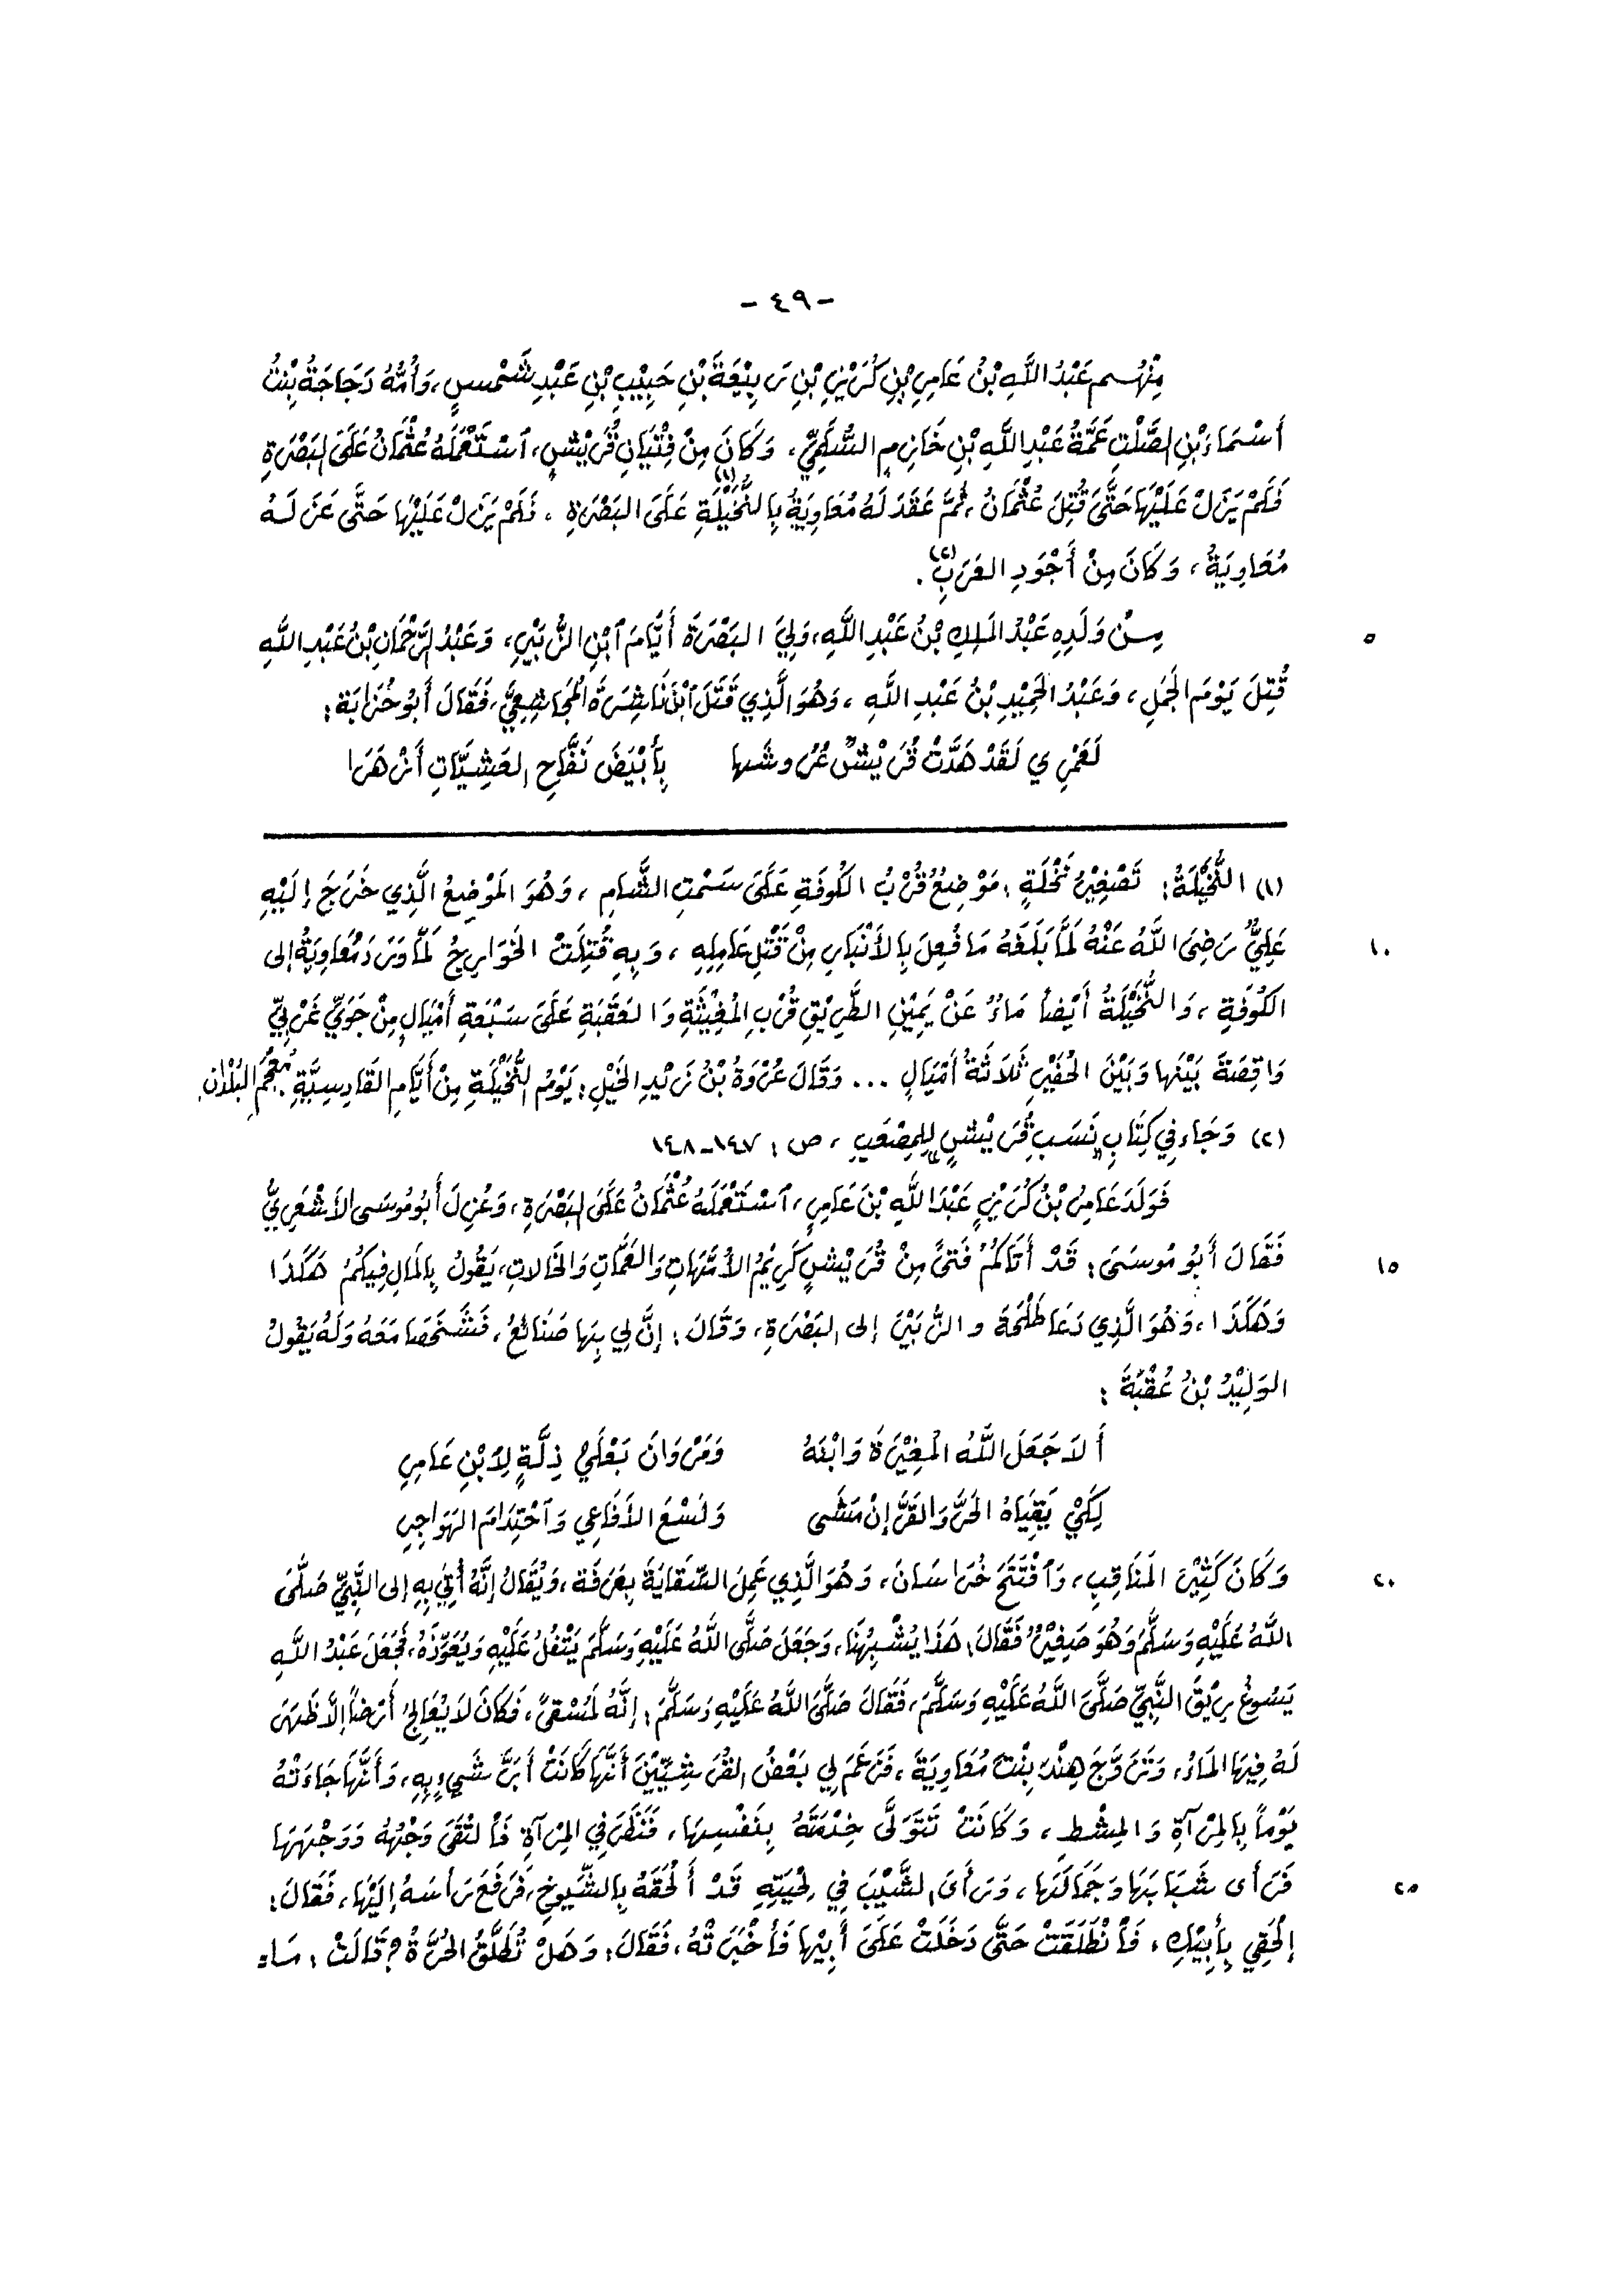 - ٤٩ -
مِنْهُم عَبْدُ اللَّهِ بْنُ عَامِرِ بْنِ كُرَيْزِ بْنِ رَبِيْعَةَ بْنِ حَبِيْبِ بْنِ عَبْدِ شَمْسٍ، وَأُمُّهُ دَجَاجَةُ بِنْتُ
أَسْمَاءَ بْنِ الصَّلْتِ عَمَّةُ عَبْدِ اللَّهِ بْنِ خَازِمٍ السُّلَمِيِّ، وَكَانَ مِنْ فِتْيَانِ قُرَيْشٍ، ٱسْتَعْمَلَهُ عُثْمَانُ عَلَى البَصْرَةِ
فَلَمْ يَزَلْ عَلَيْهَا حَتَّى قُتِلَ عُثْمَانُ، ثُمَّ عَقَدَ لَهُ مُعَاوِيَةُ بِالنُّخَيْلَةِ (١) عَلَى البَصْرَةِ، فَلَمْ يَزَلْ عَلَيْهَا حَتَّى عَزَلَهُ
مُعَاوِيَةُ، وَكَانَ مِنْ أَجْوَدِ العَرَبِ (٢).
٥ مِنْ وَلَدِهِ عَبْدُ المَلِكِ بْنُ عَبْدِ اللَّهِ، وَلِيَ البَصْرَةَ أَيَّامَ ٱبْنِ الزُّبَيْرِ، وَعَبْدُ الرَّحْمَانِ بْنُ عَبْدِ اللَّهِ
قُتِلَ يَوْمَ الجَمَلِ، وَعَبْدُ الحَمِيْدِ بْنُ عَبْدِ اللَّهِ، وَهُوَ الَّذِي قَتَلَ ٱبْنَ نَاشِرَةَ المُجَاشِعِيَّ، فَقَالَ أَبُو حُزَابَة:
لَعَمْرِي لَقَدْ هَدَّتْ قُرَيْشٌ عُرُوشَها بِأَبْيَضَ نَفَّاحِ العَشِيَّاتِ أَزْهَرَا
(١) النُّخَيْلَةُ: تَصْغِيْرُ نَخْلَةٍ: مَوْضِعٌ قُرْبُ الكُوفَةِ عَلَى سَمْتِ الشَّامِ، وَهُوَ المَوْضِعُ الَّذِي خَرَجَ إِلَيْهِ
١٠ عَلِيٌّ رَضِيَ اللَّهُ عَنْهُ لَمَّا بَلَغَهُ مَا فُعِلَ بِالأَنْبَارِ مِنْ قَتْلِ عَامِلِهِ، وَبِهِ قُتِلَتْ الخَوَارِجُ لَمَّا وَرَدَ مُعَاوِيَةُ إلى
الكُوفَةِ، وَالنُّخَيْلَةُ أَيْضاً مَاءٌ عَنْ يَمِيْنِ الطَّرِيْقِ قُرْبِ المُغِيْثَةِ وَالعَقَبَةِ عَلَى سَبْعَةِ أَمْيَالٍ مِنْ جَوَيِّ غَرْبِيِّ
وَاقِصَةَ بَيْنَها وَبَيْنَ الحُفَيْرِ ثَلَاثَةُ أَمْيَالٍ ... وَقَالَ عُرْوَةُ بْنُ زَيْدِ الخَيْلِ: يَوْمُ النُّخَيْلَةِ مِنْ أَيَّامِ القَادِسِيَّةِ. مُعْجَمُ البُلْدَانِ.
(٢) وَجَاءَ فِي كِتَابِ «نَسَبِ قُرَيْشٍ» لِلمِصْعَبِ، ص: ١٤٧-١٤٨
فَوَلَدَ عَامِرُ بْنُ كُرَيْزٍ عَبْدَ اللَّهِ بْنَ عَامِرٍ، ٱسْتَعْمَلَهُ عُثْمَانُ عَلَى البَصْرَةِ، وَعُزِلَ أَبُو مُوسَى الأَشْعَرِيُّ
١٥ فَقَالَ أَبُو مُوسَى: قَدْ أَتَاكُمْ فَتًى مِنْ قُرَيْشٍ كَرِيْمُ الأُمَّهَاتِ وَالعَمَّاتِ وَالخَالاتِ، يَقُولُ بِالمَالِ فِيكُمْ هَكَذَا
وَهَكَذَا، وَهُوَ الَّذِي دَعَا طَلْحَةَ والزُّبَيْرَ إلى البَصْرَةِ، وَقَالَ: إِنَّ لِي بِهَا صَنَائِعُ، فَشَخَصَا مَعَهُ وَلَهُ يَقُولُ
الوَلِيْدُ بْنُ عُقْبَةَ:
أَلاَ جَعَلَ اللَّهُ المُغِيْرَةَ وَابْنَهُ وَمَرْوَانَ نَعْلَيْ ذِلَّةٍ لِٱبْنِ عَامِرِ
لِكَيْ يَقِيَاهُ الحَرَّ وَالقَرَّ إنْ مَشَى وَلَسْعَ الأَفَاعِي وَٱحْتِدَامَ الهَوَاجِرِ
٢٠ وَكَانَ كَثِيْرَ المَنَاقِبِ، وَٱفْتَتَحَ خُرَاسَانَ، وَهُوَ الَّذِي عَمِلَ السِّقَايَةَ بِعَرَفَة، وَيُقَالُ إنَّهُ أُتِيَ بِهِ إلى النَّبِيِّ صَلَّى
اللهُ عَلَيْهِ وَسَلَّمَ وَهُوَ صَغِيْرٌ فَقَالَ: هَذَا يُشْبِهُنَا، وَجَعَلَ صَلَّى اللهُ عَلَيْهِ وَسَلَّمَ يَتْفُلُ عَلَيْهِ وَيُعَوِّذُهُ، فَجَعَلَ عَبْدُ اللَّهِ
يَسُوغُ رِيْقَ النَّبِيِّ صَلَّى اللهُ عَلَيْهِ وَسَلَّمَ، فَقَالَ صَلَّى اللهُ عَلَيْهِ وَسَلَّمَ: إنَّهُ لَمُسْقىً، فَكَانَ لاَ يُعَالِجُ أَرْضاً إلاَّ ظَهَرَ
لَهُ فِيهَا المَاءُ، وَتَزَوَّجَ هِنْدَ بِنْتَ مُعَاوِيَةَ، فَزَعَمَ لِي بَعْضُ القُرَشِيِّيْنَ أَنَّهَا كَانَتْ أَبَرَّ شَيْءٍ بِهِ، وَأَنَّهَا جَاءَتْهُ
يَوْماً بِالمِرْآةِ وَالمِشْطِ، وَكَانَتْ تَتَوَلَّى خِدْمَتَهُ بِنَفْسِهَا، فَنَظَرَ فِي المِرْآةِ فَٱلْتَقَى وَجْهُهُ وَوَجْهَهَا
٢٥ فَرَأى شَبَابَهَا وَجَمَالَهَا، وَرَأَى الشَّيْبَ فِي لِحْيَتِهِ قَدْ أَلْحَقَهُ بِالشَّيوخِ، فَرَفَعَ رَأسَهُ إلَيْهَا، فَقَالَ:
إلْحَقِي بِأَبِيْكِ، فَٱنْطَلَقَتْ حَتَّى دَخَلَتْ عَلَى أَبِيْهَا فَأَخْبَرَتْهُ، فَقَالَ: وَهَلْ تُطَلَّقُ الحُرَّةُ؟ قَالَتْ: مَا=